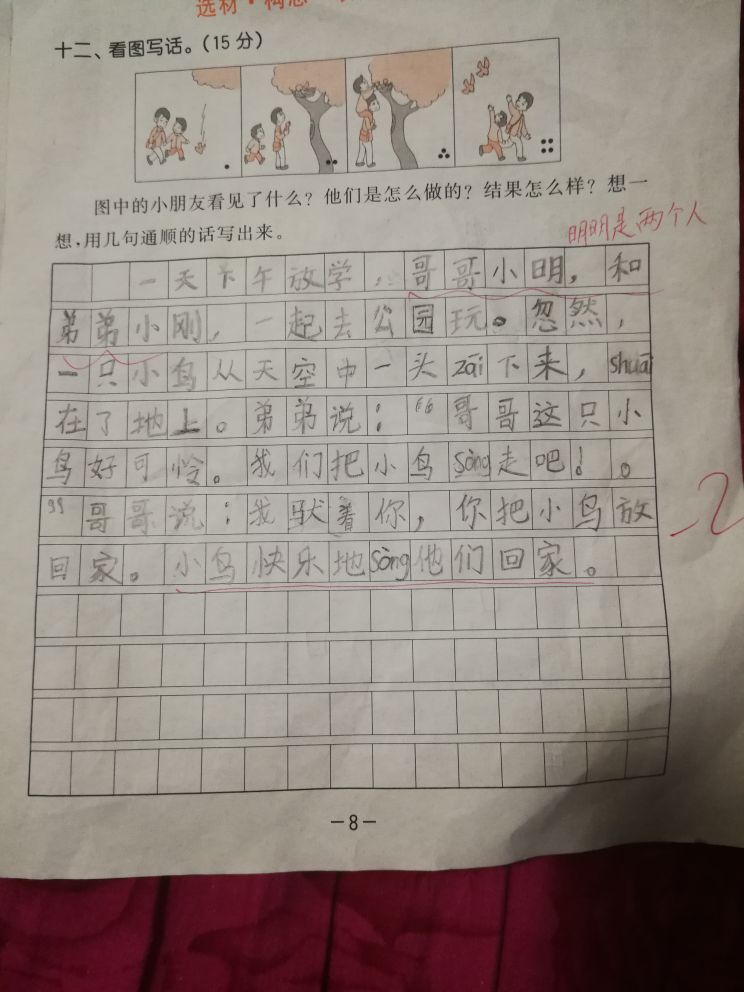 选材·构思
十二、看图写话。(15分)
图中的小朋友看见了什么?他们是怎么做的?结果怎么样?想一
想,用几句通顺的话写出来。
明明是两个人
一天下午放学,哥哥小明,和
弟弟小刚,一起去公园玩。忽然,
一只小鸟从天空中一头zāi下来,shuāi
在了地上。弟弟说:“哥哥这只小
鸟好可怜。我们把小鸟sòng走吧!。
”哥哥说:我驮着你,你把小鸟放
回家。小鸟快乐地sòng他们回家。
-2
-8-